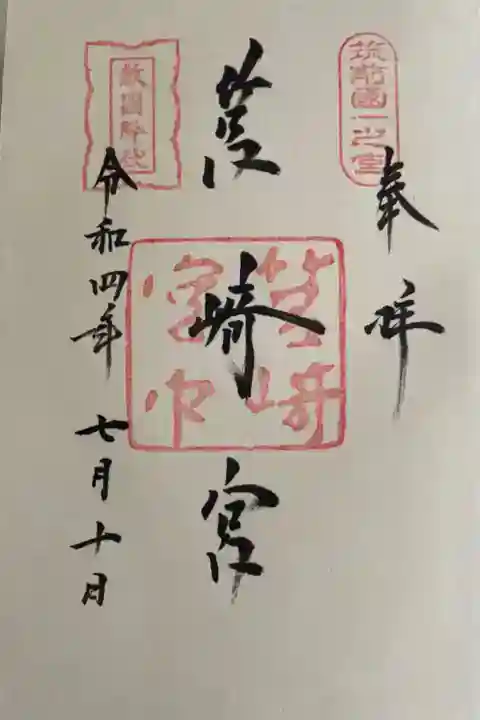 筑前國一之宮
奉拝
筥崎宮
筥崎宮印
敵國降伏
令和四年 七月十日